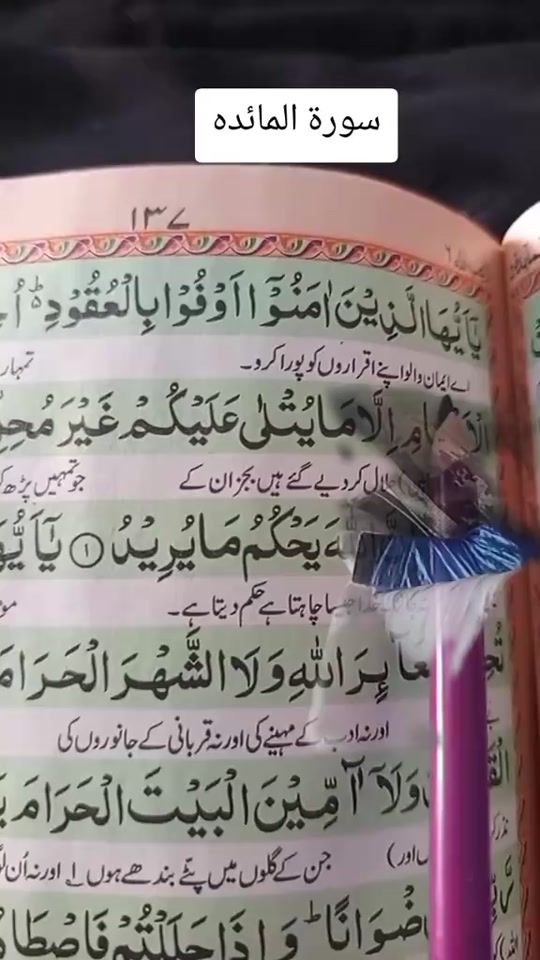 سورة المائدہ
١٣٧
يٰٓاَيُّهَا الَّذِيْنَ اٰمَنُوْٓا اَوْفُوْا بِالْعُقُوْدِ ؕ
اے ایمان والو اپنے اقراروں کو پورا کرو۔
اِلَّا مَا يُتْلٰى عَلَيْكُمْ غَيْرَ
حلال کردیے گئے ہیں بجز ان کے جو تمہیں پڑھ
يَحْكُمُ مَا يُرِيْدُ ١
چاہتا ہے حکم دیتا ہے۔
اللّٰهِ وَلَا الشَّهْرَ الْحَرَامَ
اور نہ ادب کے مہینے کی اور نہ قربانی کے جانوروں کی
وَلَآ آٰمِّيْنَ الْبَيْتَ الْحَرَامَ
اور) جن کے گلوں میں پٹے بندھے ہوں اور نہ
وَاِذَا حَلَلْتُمْ